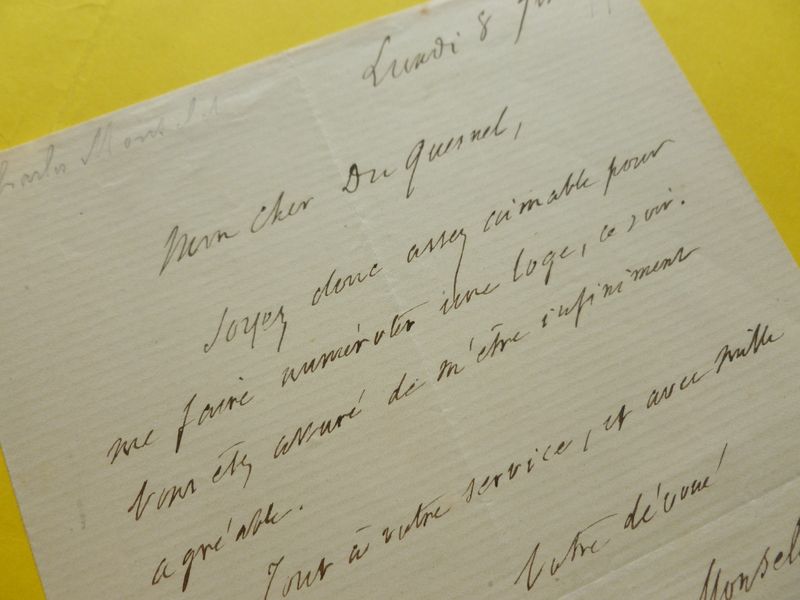 Lundi 8
Charles Monselet
Mon cher Du Quesnel,
Soyez donc assez aimable pour
me faire numéroter une loge, ce soir.
Vous êtes assuré de m'être infiniment
agréable.
Tout à votre service, et avec mille
Votre dévoué
Monsel